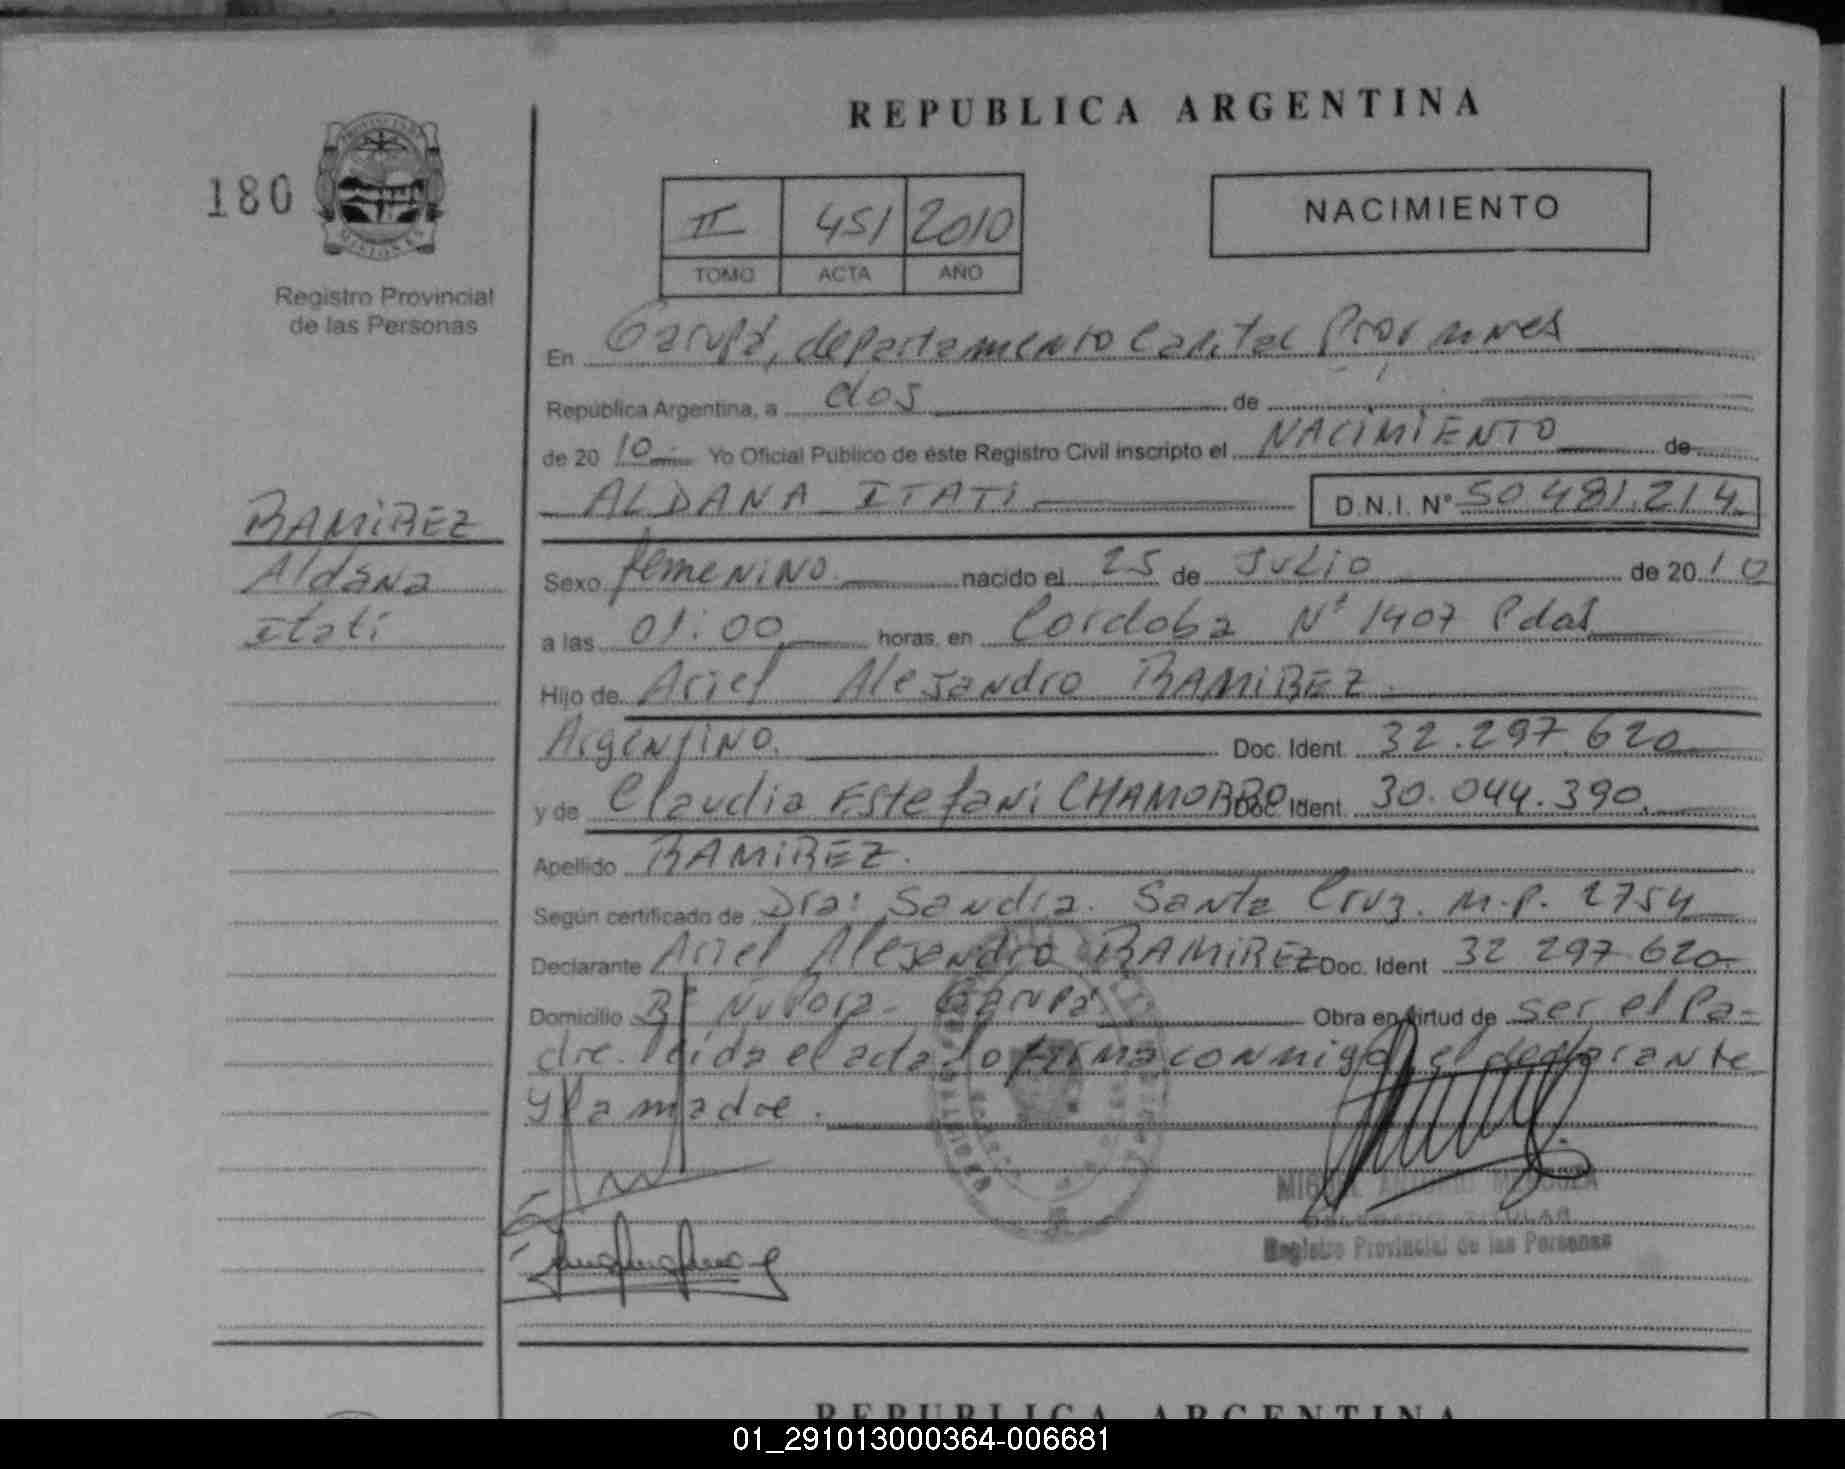 REPUBLICA ARGENTINA
180
PROVINCIA DE
MISIONES
Registro Provincial
de las Personas
II 451 2010
TOMO ACTA AÑO
NACIMIENTO
En Garupá, departamento Capital Prov
República Argentina, a dos de
de 20 10 Yo Oficial Público de éste Registro Civil inscripto el NACIMIENTO de
ALDANA ITATI D.N.I. N° 50.481.214
RAMIREZ
Aldana
Itati
Sexo femenino nacido el 25 de Julio de 20 10
a las 01:00 horas, en Cordoba N° 1407 Pdas
Hijo de Ariel Alejandro RAMIREZ
Argentino. Doc. Ident. 32.297.620
y de Claudia Estefani CHAMORRO Doc. Ident. 30.044.390.
Apellido RAMIREZ.
Según certificado de Dra: Sandra Santa Cruz. M.P. 2754
Declarante Ariel Alejandro RAMIREZ Doc. Ident 32 297 620
Domicilio B° Garupá Obra en virtud de ser el Pa-
dre. leída el acta firma conmigo el declarante
y la madre.
MIGUEL ANTONIO
DELEGADO TITULAR
Registro Provincial de las Personas
REPUBLICA ARGENTINA
01_291013000364-006681